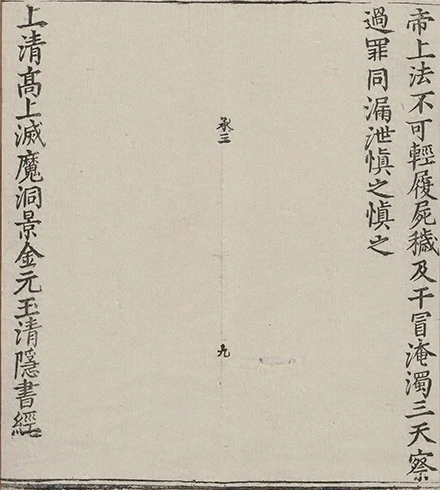 帝上法不可輕履屍穢及干冒淹濁三天察
過罪同漏泄慎之慎之
承三
九
上清高上滅魔洞景金元玉清隱書經